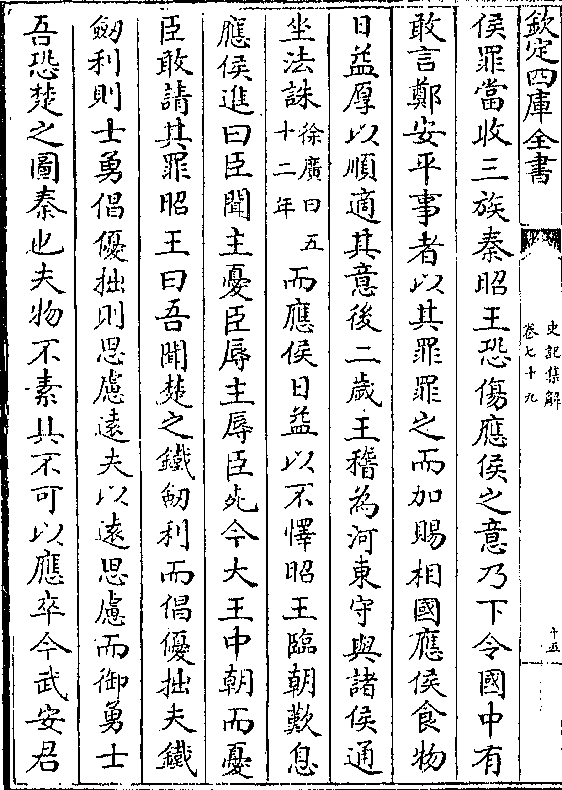 欽定四庫全書
史記集解
卷七十九
十五
侯罪當收三族秦昭王恐傷應侯之意乃下令國中有
敢言鄭安平事者以其罪罪之而加賜相國應侯食物
日益厚以順適其意後二歲王稽為河東守與諸侯通
坐法誅徐廣曰五十二年而應侯日益以不懌昭王臨朝歎息
應侯進曰臣聞主憂臣辱主辱臣死今大王中朝而憂
臣敢請其罪昭王曰吾聞楚之鐵劒利而倡優拙夫鐵
劒利則士勇倡優拙則思慮遠夫以遠思慮而御勇士
吾恐楚之圖秦也夫物不素具不可以應卒今武安君